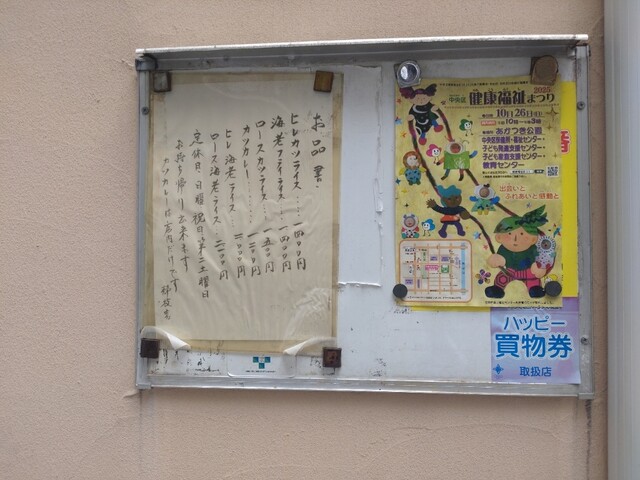 お品書
ヒレカツライス……一四〇〇円
海老フライライス……一四〇〇円
ロースカツライス……一五〇〇円
カツカレー……
ヒレ海老ライス……
ロース海老ライス……
定休日・日曜祝日第三土曜日
お持ち帰り出来ます
カツカレーは店内のみです
2025
中央区 健康福祉まつり
10月26日(日)
午前10時~午後3時
あかつき公園
中央区保健所・福祉センター・
子ども発達支援センター・
子ども家庭支援センター・
教育センター
出会いと
ふれあいと感動と
ハッピー
買物券
取扱店